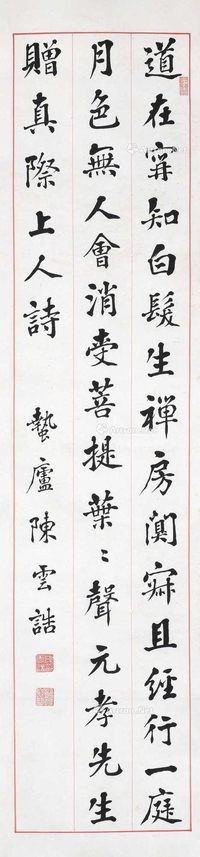 道在寗知白髮生禪房闃寂且經行一庭
月色無人會消受菩提葉〻聲元孝先生
贈真際上人詩 蟄廬陳雲誥